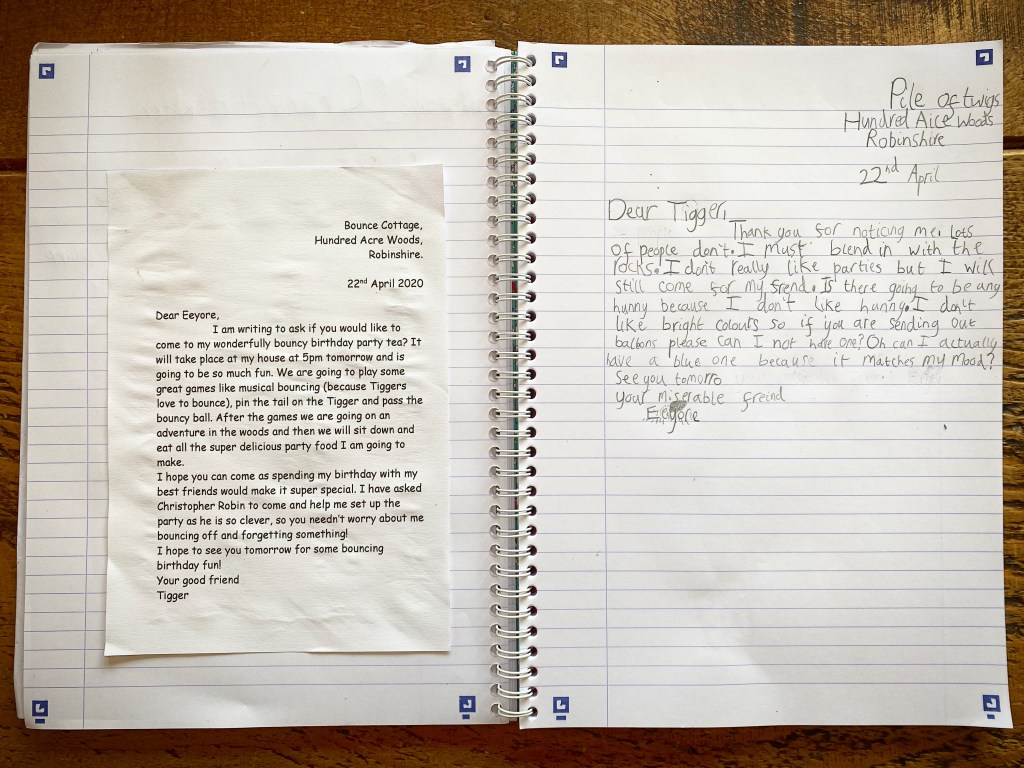 Bounce Cottage,
Hundred Acre Woods,
Robinshire.
22nd April 2020
Dear Eeyore,
I am writing to ask if you would like to
come to my wonderfully bouncy birthday party tea? It
will take place at my house at 5pm tomorrow and is
going to be so much fun. We are going to play some
great games like musical bouncing (because Tiggers
love to bounce), pin the tail on the Tigger and pass the
bouncy ball. After the games we are going on an
adventure in the woods and then we will sit down and
eat all the super delicious party food I am going to
make.
I hope you can come as spending my birthday with my
best friends would make it super special. I have asked
Christopher Robin to come and help me set up the
party as he is so clever, so you needn't worry about me
bouncing off and forgetting something!
I hope to see you tomorrow for some bouncing
birthday fun!
Your good friend
Tigger
Pile of twigs
Hundred Aice Woods
Robinshire
22nd April
Dear Tigger,
Thank you for noticing me. Lots
of people don't. I must blend in with the
rocks. I don't really like parties but I will
still come for my frend. Is there going to be any
hunny because I don't like hunny. I don't
like bright colours so if you are sending out
balloons please can I not have one? Oh can I actually
have a blue one because it matches my mood?
See you tomorro
your miserable freind
Eeyore